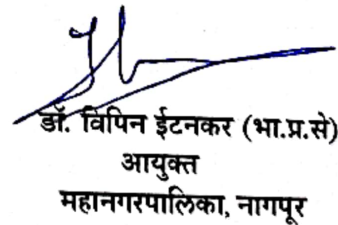 डॉ. विपिन ईटनकर (भा.प्र.से)
आयुक्त
महानगरपालिका, नागपूर